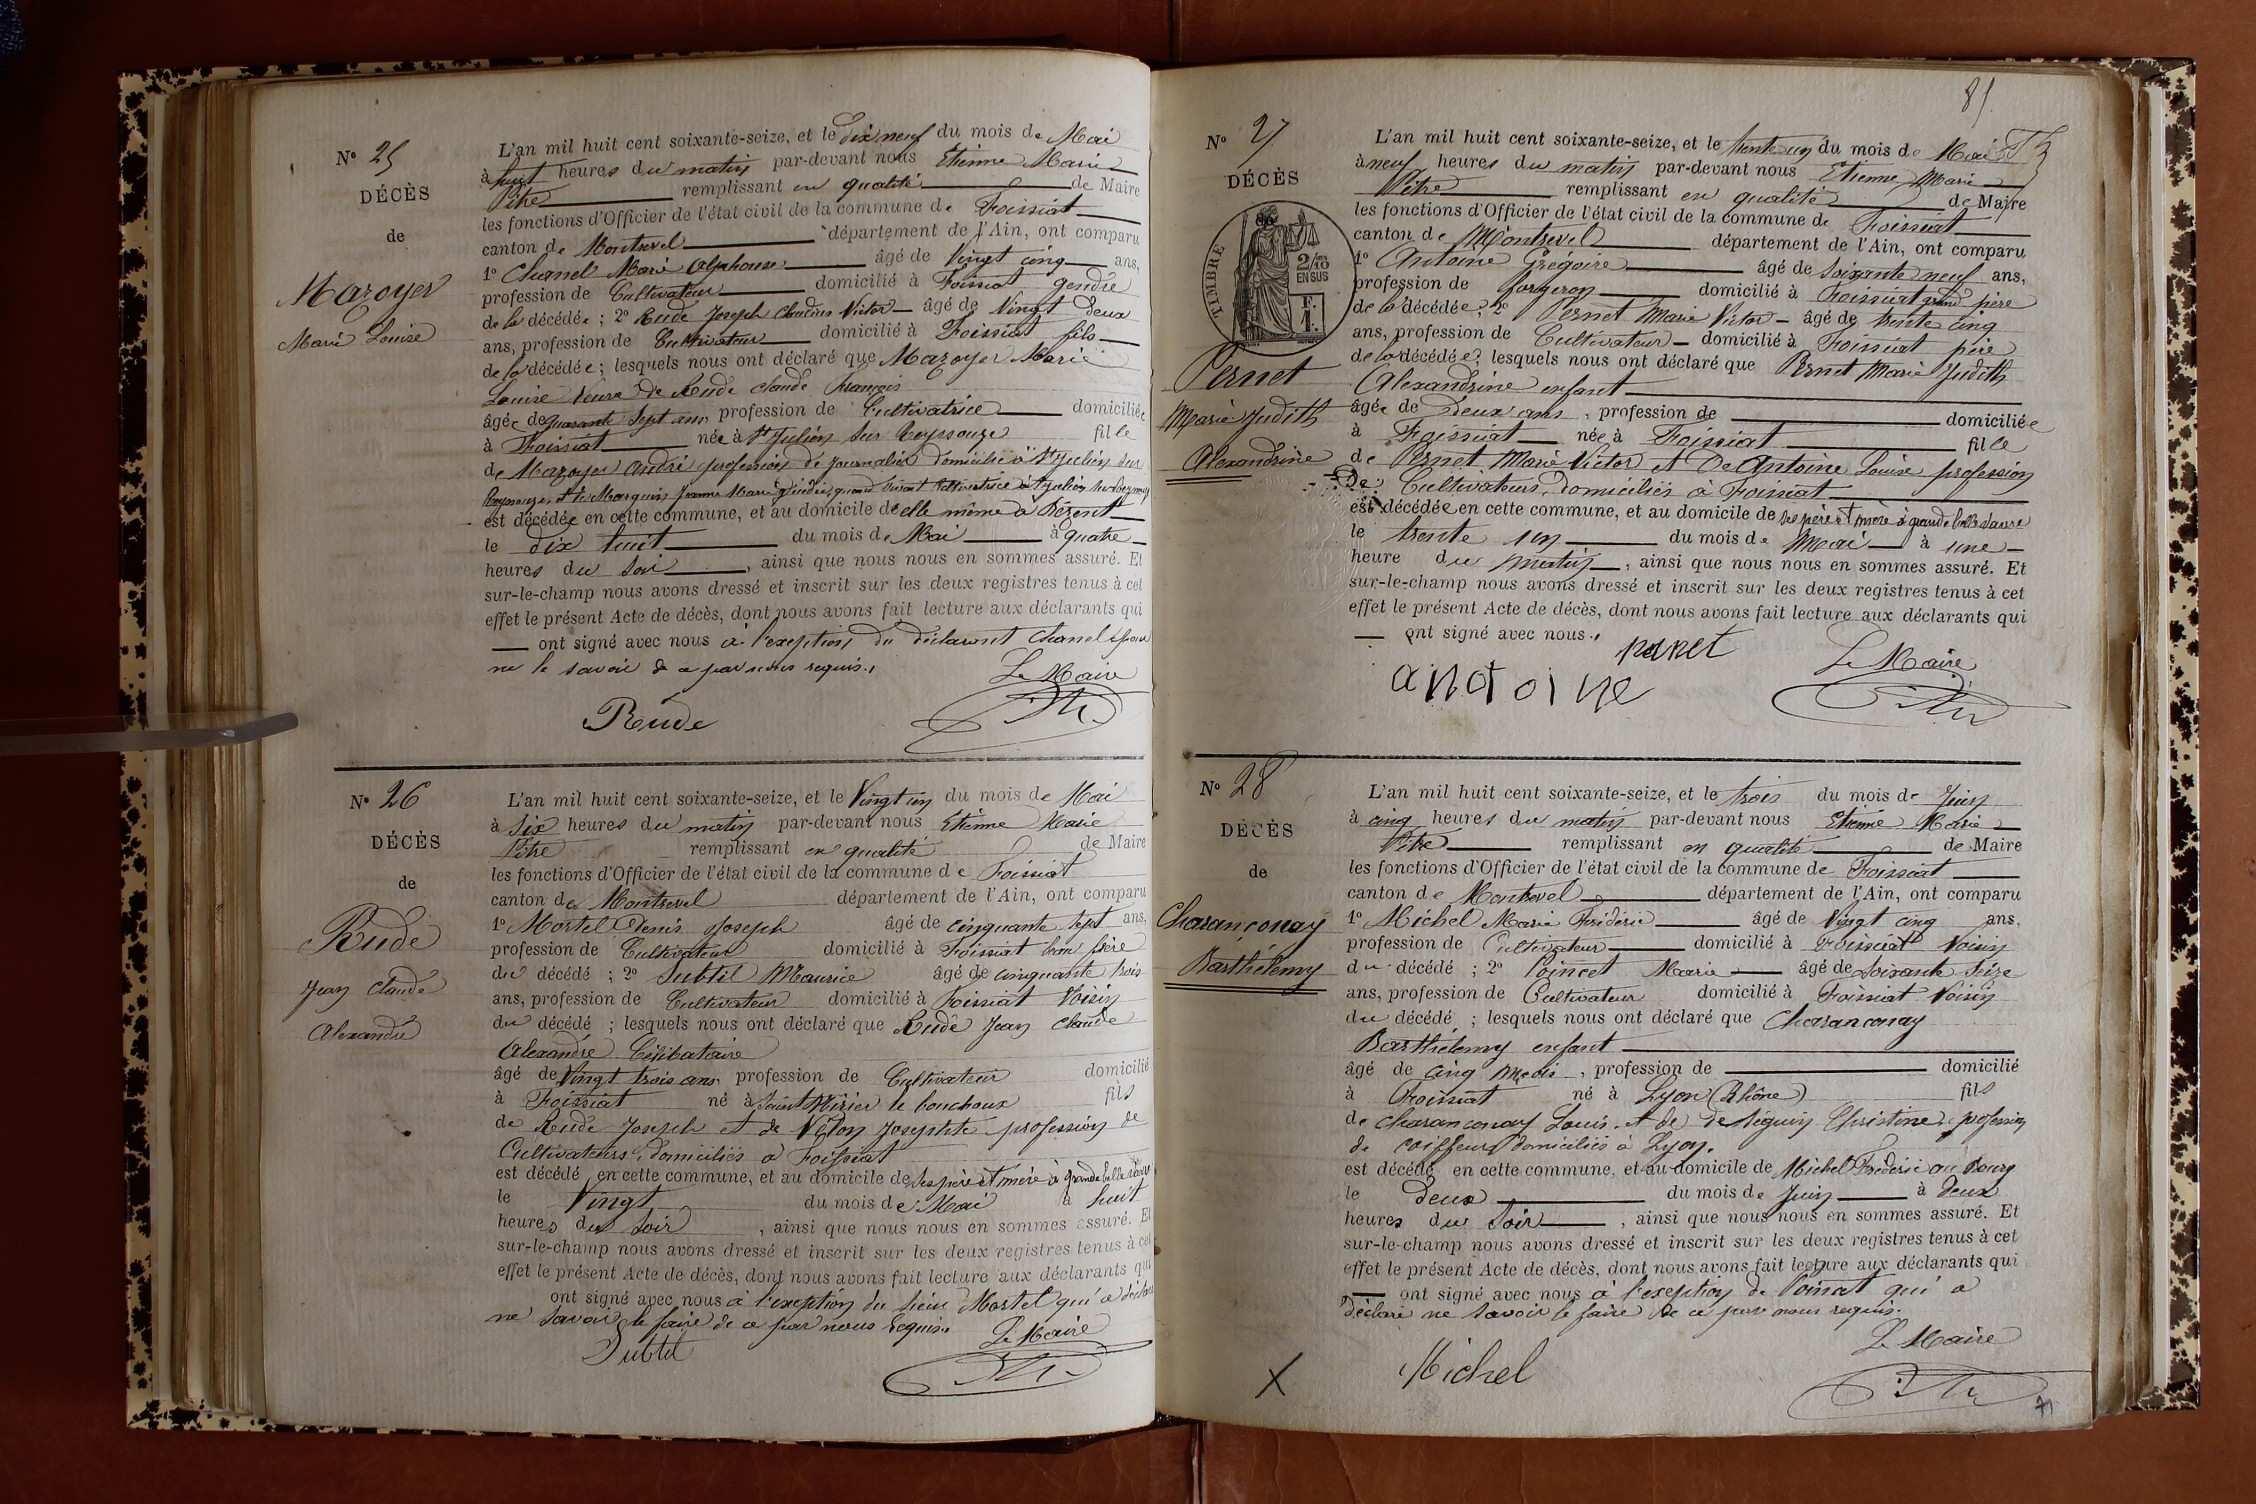 N° 25
DÉCÈS
de
Mazoyer
Marie Louise
L'an mil huit cent soixante-seize, et le dix neuf du mois de Mai
à huit heures du matin par-devant nous Etienne Marie
Pitre remplissant en qualité de Maire
les fonctions d'Officier de l'état civil de la commune de Foissiat
canton de Montrevel département de l'Ain, ont comparu
1° Chanel Marie Alphonse âgé de Vingt cinq ans,
profession de Cultivateur domicilié à Foissiat gendre
de la décédée ; 2° Rude Joseph Claudius Victor âgé de Vingt deux
ans, profession de Cultivateur domicilié à Foissiat fils
de la décédée ; lesquels nous ont déclaré que Mazoyer Marie
Louise Veuve de Rude Claude François
âgée de quarante Sept ans profession de Cultivatrice domiciliée
à Foissiat née à St Julien sur Reyssouze fille
de Mazoyer André profession de Journalier domicilié à St Julien sur
Reyssouze, et de Marguin Jeanne Marie quand vivait Cultivatrice à St Julien sur Reyssouze
est décédée en cette commune, et au domicile de elle même à
le dix huit du mois de Mai à quatre
heures du soir, ainsi que nous nous en sommes assuré. Et
sur-le-champ nous avons dressé et inscrit sur les deux registres tenus à cet
effet le présent Acte de décès, dont nous avons fait lecture aux déclarants qui
ont signé avec nous à l'exeption du déclarant Chanel pour
ne le savoir de ce par nous requis.
Le Maire
Rude
N° 26
DÉCÈS
de
Rude
Jean Claude
Alexandre
L'an mil huit cent soixante-seize, et le Vingt un du mois de Mai
à Six heures du matin par-devant nous Etienne Marie
Pitre remplissant en qualité de Maire
les fonctions d'Officier de l'état civil de la commune de Foissiat
canton de Montrevel département de l'Ain, ont comparu
1° Mortel Denis Joseph âgé de cinquante sept ans,
profession de Cultivateur domicilié à Foissiat beau frère
du décédé ; 2° Subtil Maurice âgé de cinquante trois
ans, profession de Cultivateur domicilié à Foissiat Voisin
du décédé ; lesquels nous ont déclaré que Rude Jean Claude
Alexandre Célibataire
âgé de Vingt trois ans profession de Cultivateur domicilié
à Foissiat né à Saint le bouchoux fils
de Rude Joseph et de Josephte profession de
Cultivateurs, domiciliés à Foissiat
est décédé en cette commune, et au domicile de Ses père et mère à grande belle
le Vingt du mois de Mai à huit
heures du Soir, ainsi que nous nous en sommes assuré. Et
sur-le-champ nous avons dressé et inscrit sur les deux registres tenus à cet
effet le présent Acte de décès, dont nous avons fait lecture aux déclarants qui
ont signé avec nous à l'exeption du Sieur Mortel qui a déclaré
ne savoir le faire de ce par nous requis.
Le Maire
Subtil
81
N° 27
DÉCÈS
TIMBRE
2/10 EN SUS
Pernet
Marie Judith
Alexandrine
L'an mil huit cent soixante-seize, et le trente un du mois de Mai
à neuf heures du matin par-devant nous Etienne Marie
Pitre remplissant en qualité de Maire
les fonctions d'Officier de l'état civil de la commune de Foissiat
canton de Montrevel département de l'Ain, ont comparu
1° Antoine Grégoire âgé de soixante neuf ans,
profession de forgeron domicilié à Foissiat grand père
de la décédée ; 2° Pernet Marie Victor âgé de trente cinq
ans, profession de Cultivateur domicilié à Foissiat père
de la décédée ; lesquels nous ont déclaré que Pernet Marie Judith
Alexandrine enfant
âgée de Deux ans, profession de domiciliée
à Foissiat née à Foissiat fille
de Pernet Marie Victor et de Antoine Louise profession
De Cultivateurs, domiciliés à Foissiat
est décédée en cette commune, et au domicile de Ses père et mère à grande belle
le trente un du mois de Mai à une
heure du matin, ainsi que nous nous en sommes assuré. Et
sur-le-champ nous avons dressé et inscrit sur les deux registres tenus à cet
effet le présent Acte de décès, dont nous avons fait lecture aux déclarants qui
ont signé avec nous.
pernet
Le Maire
antoine
N° 28
DÉCÈS
de
Charançonay
Barthélemy
L'an mil huit cent soixante-seize, et le trois du mois de Juin
à cinq heures du matin par-devant nous Etienne Marie
Pitre remplissant en qualité de Maire
les fonctions d'Officier de l'état civil de la commune de Foissiat
canton de Montrevel département de l'Ain, ont comparu
1° Michel Marie Fréderic âgé de Vingt cinq ans,
profession de Cultivateur domicilié à Foissiat Voisin
du décédé ; 2° Poincet Marie âgé de Soixante Seize
ans, profession de Cultivateur domicilié à Foissiat Voisin
du décédé ; lesquels nous ont déclaré que Charançonay
Barthélemy enfant
âgé de cinq Mois, profession de domicilié
à Foissiat né à Lyon (Rhône) fils
de Charançonay Louis et de Christine, profession
de coiffeurs, domiciliés à Lyon.
est décédé en cette commune, et au domicile de Michel Fréderic au Bourg
le deux du mois de Juin à deux
heures du Soir, ainsi que nous nous en sommes assuré. Et
sur-le-champ nous avons dressé et inscrit sur les deux registres tenus à cet
effet le présent Acte de décès, dont nous avons fait lecture aux déclarants qui
ont signé avec nous à l'exeption de Poincet qui a
déclaré ne savoir le faire de ce par nous requis.
Le Maire
Michel